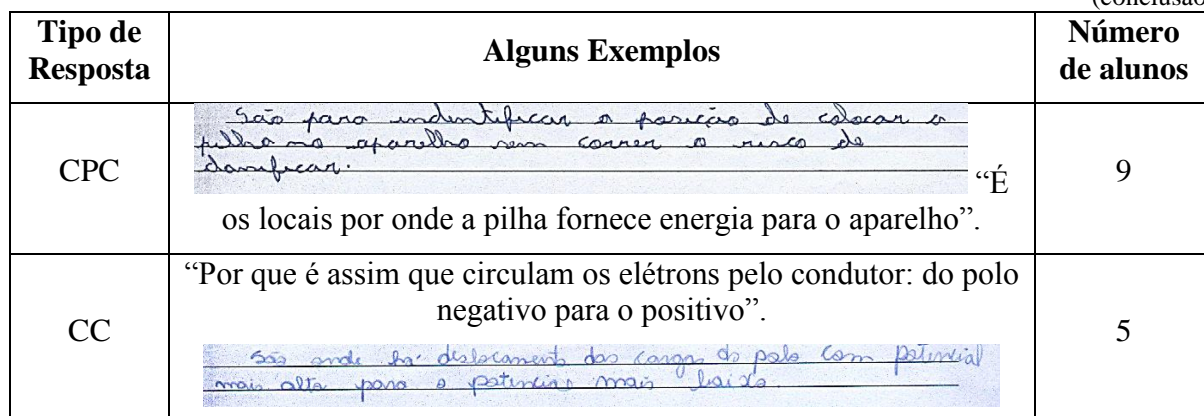 (conclusão
Tipo de Resposta
Alguns Exemplos
Número de alunos
CPC
São para indentificar a posição de colocar a
pilha no aparelho sem correr o risco de
danificar.
“É
os locais por onde a pilha fornece energia para o aparelho”.
9
CC
“Por que é assim que circulam os elétrons pelo condutor: do polo
negativo para o positivo”.
São onde há deslocamento das cargas do polo com potencial
mais alta para o potencial mais baixo.
5